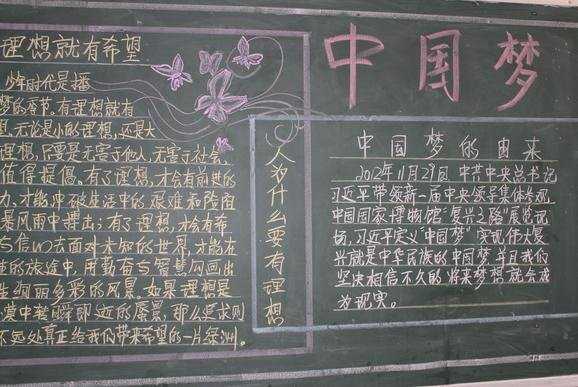 理想就有希望
少年时代是播
梦的季节。有理想就有
无论是小的理想，还是大
理想，只要是无害于他人，无害于社会，
值得提倡。有了理想，才会有前进的
力，才能冲破生活中的艰难和险阻
暴风雨中搏击；有了理想，才会有希
与信心去面对未知的世界，才能在
的旅途中，用勤奋与智慧勾画出
生绚丽多彩的风景。如果理想是
瞬即逝的
不远处真正给我们带来希望的一片绿洲。
人为什么要有理想
中国梦
中国梦的由来
2012年11月29日，中共中央总书记
习近平带领新一届中央领导集体参观
中国国家博物馆"复兴之路"展览现
场，习近平定义"中国梦"实现伟大复
兴就是中华民族的中国梦，并且我们
坚决相信不久的将来梦想就会成
为现实。